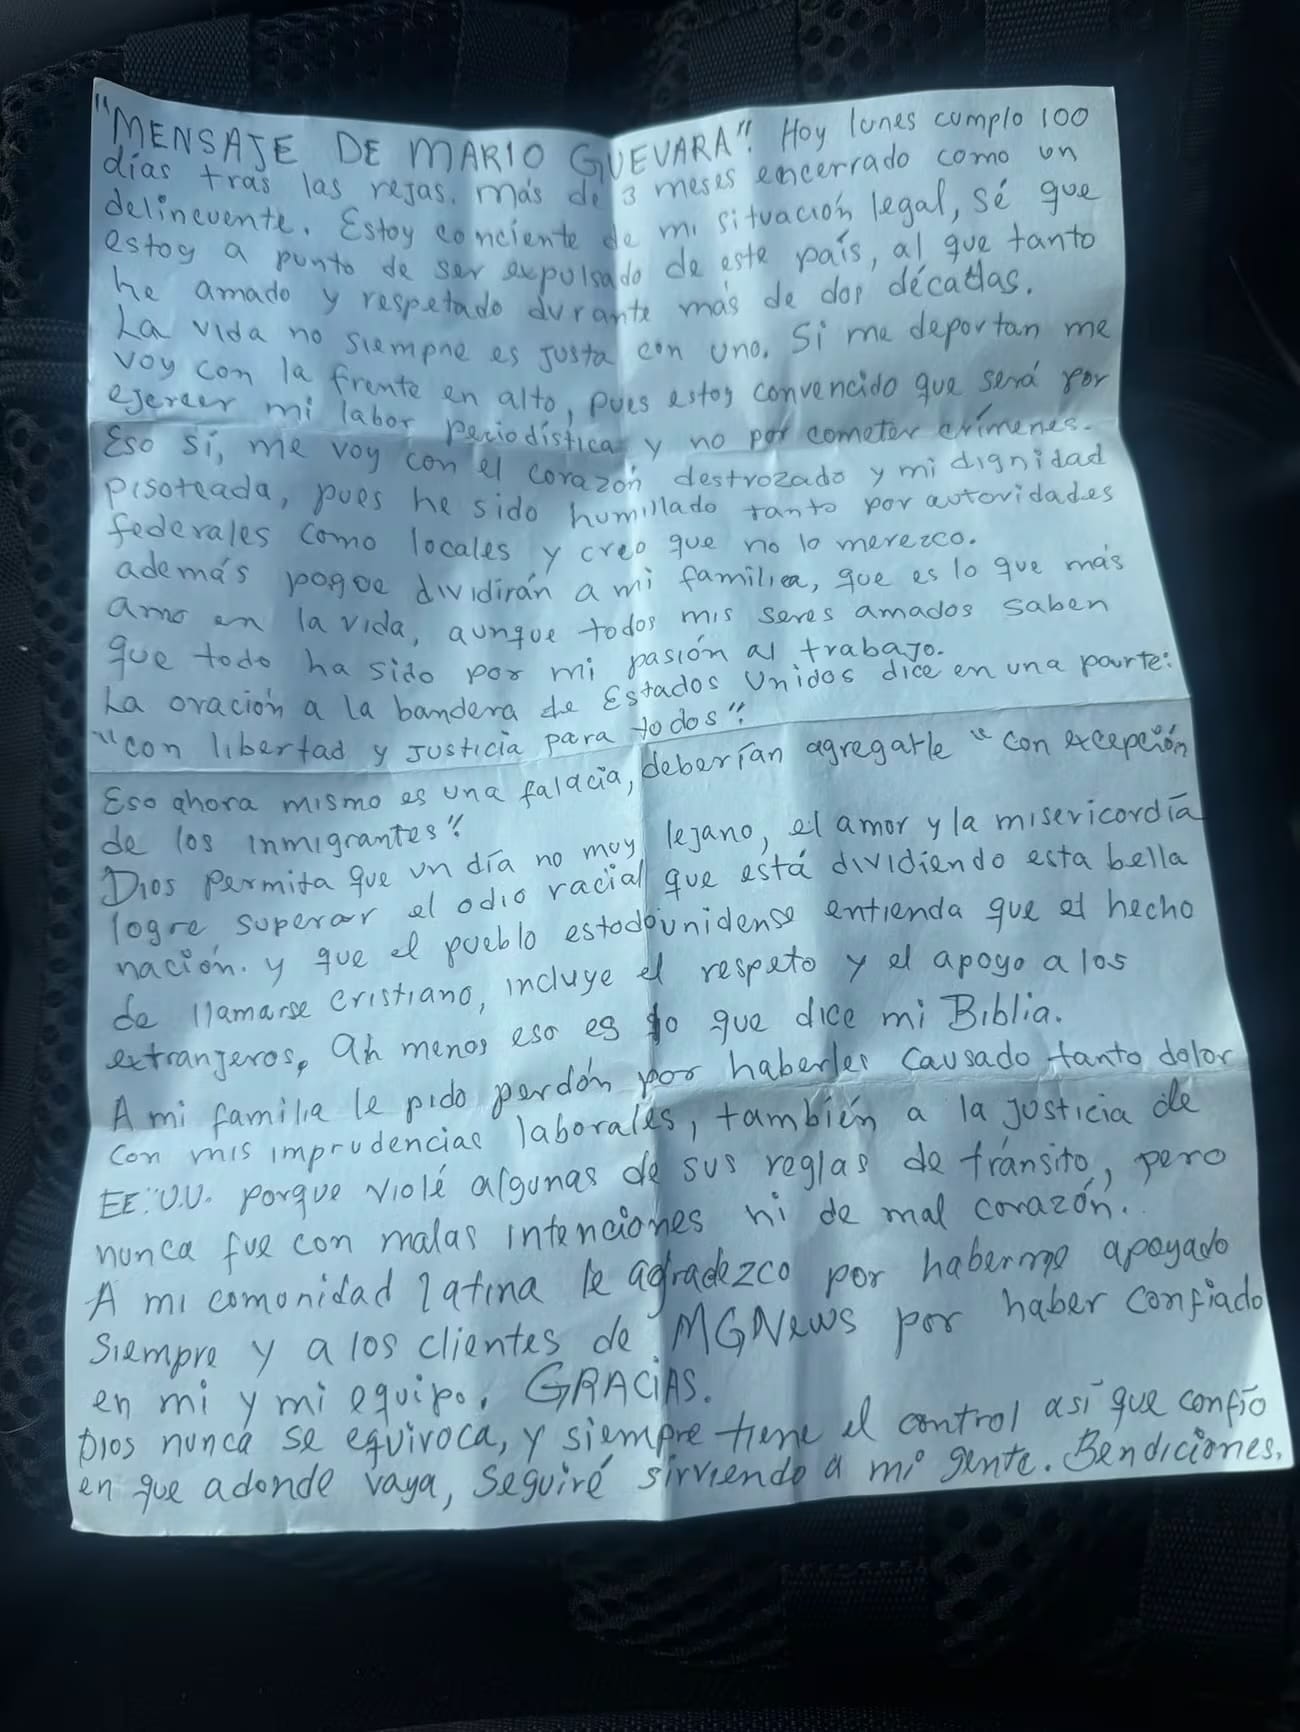 "MENSAJE DE MARIO GUEVARA". Hoy lunes cumplo 100
días tras las rejas. más de 3 meses encerrado como un
delincuente. Estoy conciente de mi situación legal, sé que
estoy a punto de ser expulsado de este país, al que tanto
he amado y respetado durante más de dos décadas.
La vida no siempre es justa con uno. Si me deportan me
voy con la frente en alto, pues estoy convencido que será por
ejercer mi labor periodística y no por cometer crímenes.
Eso sí, me voy con el corazón destrozado y mi dignidad
pisoteada, pues he sido humillado tanto por autoridades
federales como locales y creo que no lo merezco.
además poque dividirán a mi familia, que es lo que más
amo en la vida, aunque todos mis seres amados saben
que todo ha sido por mi pasión al trabajo.
La oración a la bandera de Estados Unidos dice en una parte:
"con libertad y justicia para todos".
Eso ahora mismo es una falacia, deberían agregarle "con excepción
de los inmigrantes".
Dios permita que un día no muy lejano, el amor y la misericordía
logre superar el odio racial que está dividiendo esta bella
nación. y que el pueblo estadounidense entienda que el hecho
de llamarse cristiano, incluye el respeto y el apoyo a los
extranjeros. Ah menos eso es lo que dice mi Biblia.
A mi familia le pido perdón por haberles causado tanto dolor
con mis imprudencias laborales, también a la justicia de
EE.UU. porque violé algunas de sus reglas de tránsito, pero
nunca fue con malas intenciones ni de mal corazón.
A mi comonidad latina le agradezco por haberme apoyado
siempre y a los clientes de MGNews por haber confiado
en mi y mi equipo. GRACIAS.
Dios nunca se equivoca, y siempre tiene el control así que confío
en que adonde vaya, seguiré sirviendo a mi gente. Bendiciones.